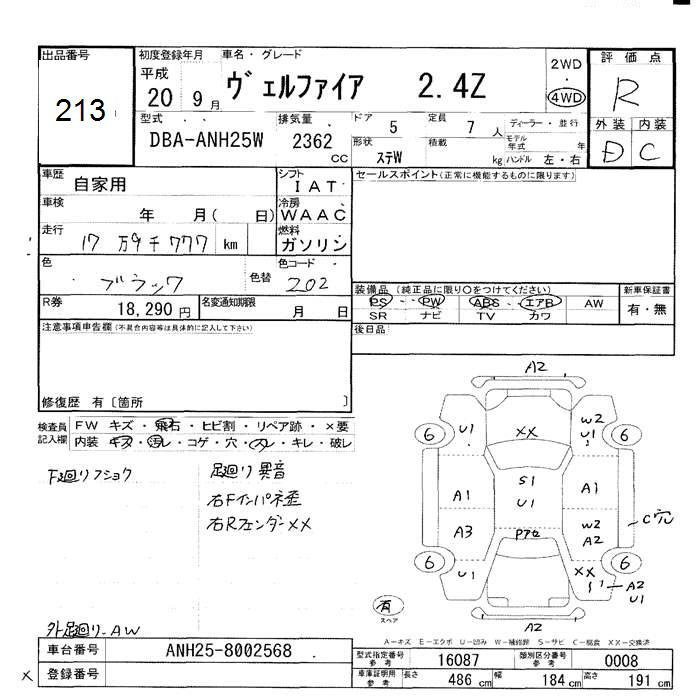 出品番号
213
初度登録年月
平成
20 9月
車名・グレード
ヴェルファイア 2.4Z
2WD
・
4WD
評価点
R
外装 内装
D C
型式
DBA-ANH25W
排気量
2362
cc
ドア
5
定員
7 人
ディーラー・並行
形状
ステW
積載
kg
モデル
年式 年
ハンドル 左・右
車歴
自家用
シフト
IAT
車検
年 月( 日)
冷房
WAAC
走行
17万9千777 km
燃料
ガソリン
色
ブラック
色替
色コード
202
R券
18,290円
名変通知期限
月 日
セールスポイント(正常に機能するものに限ります)
装備品 (純正品に限り○をつけてください)
新車保証書
PS・PW ABS・エアB AW
SR ナビ TV カワ
有・無
後日品
注意事項申告欄(不具合内容等は具体的に記入して下さい)
修復歴 有〔箇所 〕
検査員
記入欄
FW キズ・飛石・ヒビ割・リペア跡・×要
内装 キズ・汚レ・コゲ・穴・ハレ・キレ・破レ
F廻りフショク
足廻り異音
右Fインパネ歪
右Rフェンダー××
外足廻り-AW
A2
U1
××
W2
U1
6
6
S1
U1
A1
A1
A3
W2
A2
C穴
Pアセ
6
6
U1
××
S1
A2
U1
有
スペア
A2
A-キズ E-エクボ U-凹み W-補修跡 S-サビ C-腐食 ××-交換済
車台番号
ANH25-8002568
登録番号
型式指定番号
参考
16087
類別区分番号
参考
0008
車庫証明用
参考
長さ
486 cm
幅
184 cm
高さ
191 cm